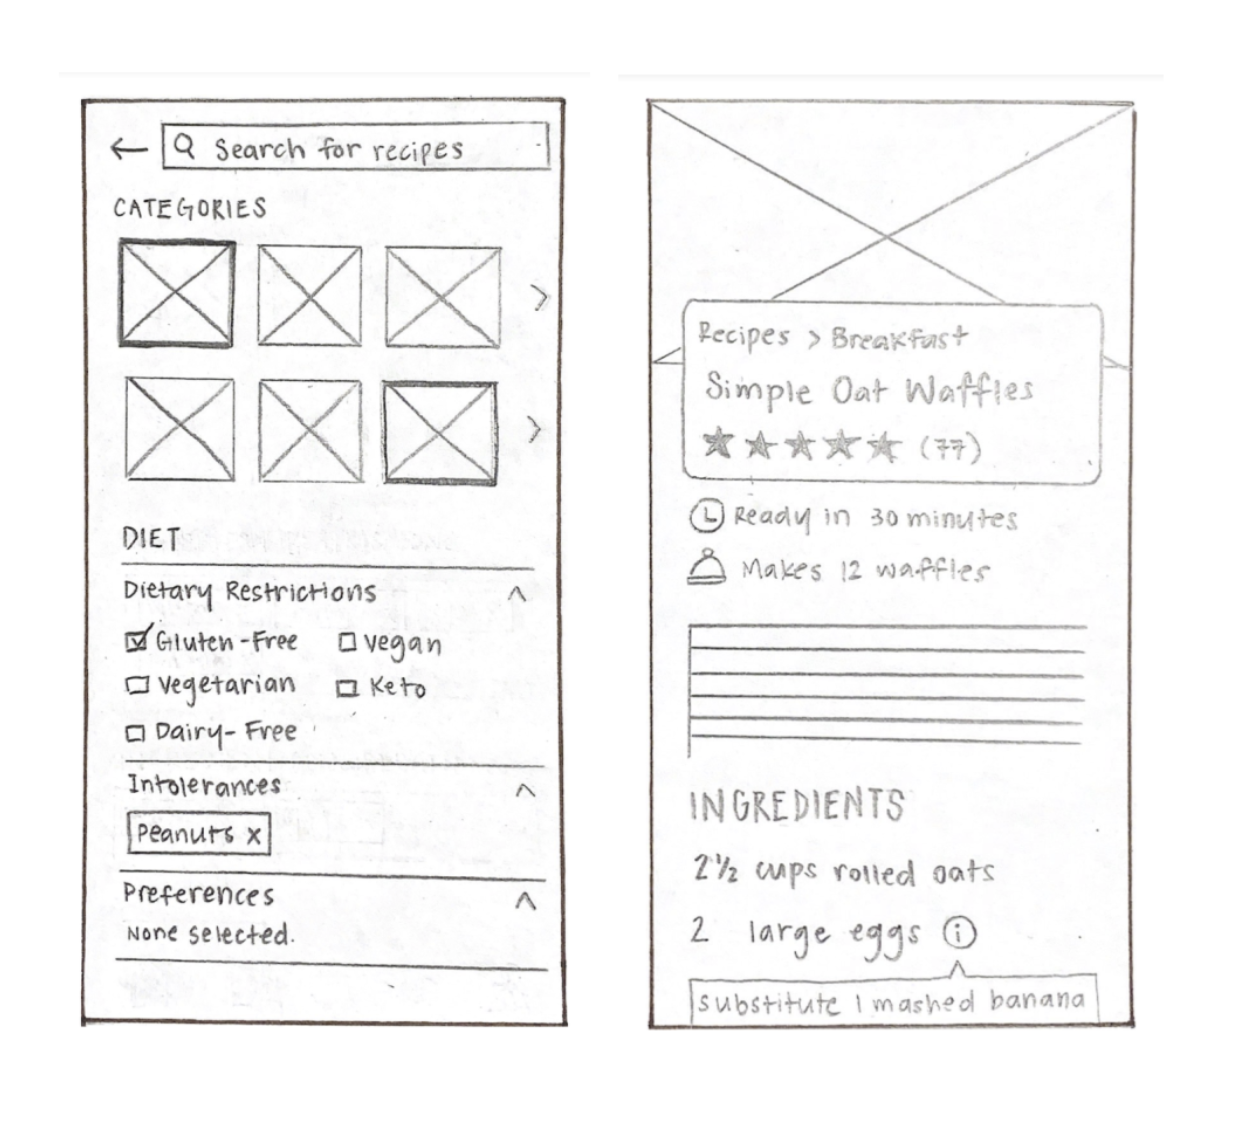 Search for recipes
CATEGORIES
DIET
Dietary Restrictions
Gluten-Free
vegan
vegetarian
Keto
Dairy-Free
Intolerances
Peanuts x
Preferences
None selected.
Recipes > Breakfast
Simple Oat Waffles
★★★★★ (77)
Ready in 30 minutes
Makes 12 waffles
INGREDIENTS
2½ cups rolled oats
2 large eggs i
substitute 1 mashed banana